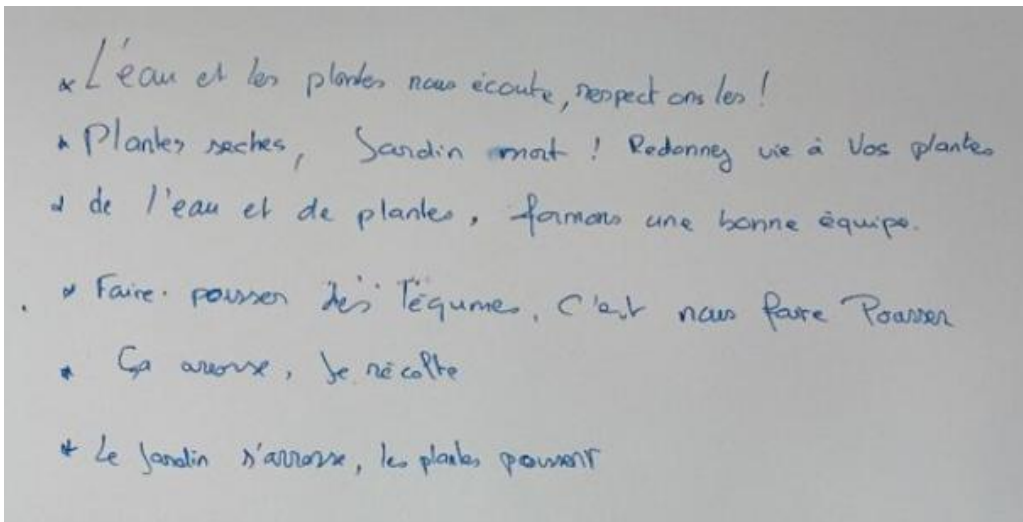 * L'eau et les plantes nous écoute, respectons les !
* Plantes seches, Jardin mort ! Redonnez vie à Vos plantes
* de l'eau et de plantes, formons une bonne équipe.
* Faire pousser des légumes, C'est nous faire Pousser
* Ça arrose, Je récolte
* Le Jardin s'arrose, les plantes poussent